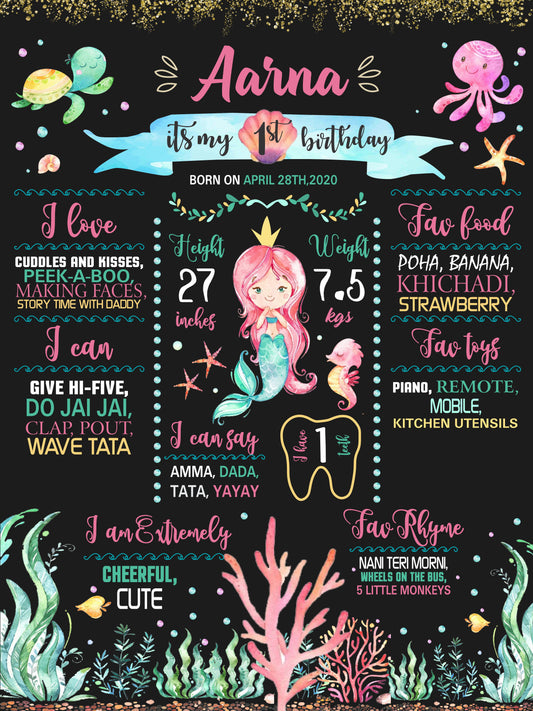 Aarna
it's my 1st birthday
BORN ON APRIL 28TH,2020
I love
CUDDLES AND KISSES,
PEEK-A-BOO,
MAKING FACES,
STORY TIME WITH DADDY
I can
GIVE HI-FIVE,
DO JAI JAI,
CLAP, POUT,
WAVE TATA
Height
27
inches
Weight
7.5
kgs
I can say
AMMA, DADA,
TATA, YAYAY
I have
1
teeth
Fav food
POHA, BANANA,
KHICHADI,
STRAWBERRY
Fav toys
PIANO, REMOTE,
MOBILE,
KITCHEN UTENSILS
I am Extremely
CHEERFUL,
CUTE
Fav Rhyme
NANI TERI MORNI,
WHEELS ON THE BUS,
5 LITTLE MONKEYS